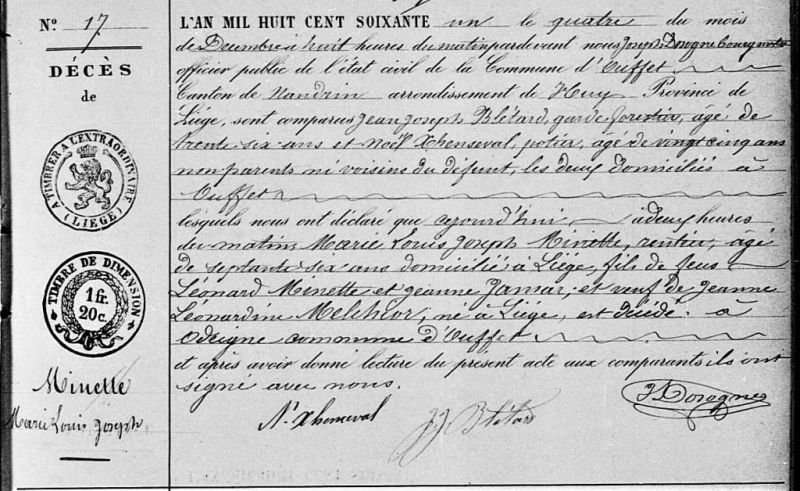 N.º 17
DÉCÈS
de
A TIMBRER A L'EXTRAORDINAIRE
(LIÈGE)
TIMBRE DE DIMENSION
1 fr.
20 c.
Minette
Marie Louis Joseph
L'AN MIL HUIT CENT SOIXANTE un le quatre du mois
de Decembre à huit heures du matin pardevant nous Joseph Dorogne bourgmestre
officier public de l'état civil de la Commune d'Ouffet
Canton de Nandrin arrondissement de Huy Province de
Liége, sont comparus Jean Joseph Blétard, garde forestier, âgé de
trente six ans et Noël Xhenseval, potier, âgé de vingt cinq ans
non parents ni voisins du défunt, les deux domiciliés à
Ouffet
lesquels nous ont déclaré que aujourd'hui à deux heures
du matin Marie Louis Joseph Minette, rentier, âgé
de septante six ans domicilié à Liége, fils de feus
Léonard Minette et Jeanne Jamar, et veuf de Jeanne
Leonardine Melchior, né à Liége, est décédé à
Odeigne commune d'Ouffet
et après avoir donné lecture du présent acte aux comparants ils ont
signé avec nous.
N. Xhenseval
JJ Blétard
J Dorogne